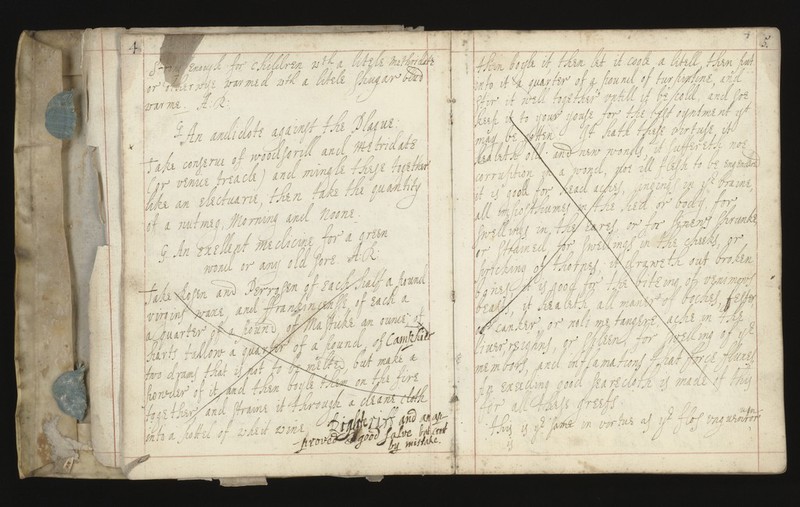 4
Strong enough for children wth a litele methridate
or otherwise warmed wth a litele shugar
warme. A:R:
An antidote against the Plague:
Take conserve of woodsorill and Metridate
(or venice treacle) and mingle these together
like an electuarie, then take the quantity
of a nutmeg, Morning and Noone.
An exellent medicine for a green
wond or any old sore A:R:
Take Rosen and Perrosen of each half a pound
virgins waxe, and frankinsense of each a
a quarter of a pound, of Mastick an ounce, of
harts tallow a quarter of a pound, of Camphier
two drams that is not to be melted but make a
powder of it and then boyle them on the fire
together, and straine it through a cleane cloth
into a pottel of whit wine,
Right Cross and an ap
proved good salve but cross
by mistake.
5
then boyle it then let it coole a litell then put
into it a quarter of a pound of turpentine, and
stir it well together untill it be cold, and soe
keep it to your youse for the best oyntment yt
may be gotten. It hath these vertues, it
healeth old and new wonds, it suffereth noe
corruption in a wond, nor ill flesh to be engendred
it is good for head aches, singing in ye braine,
all imposthumes in the hed or body, for
swellings in the eares, or for sinews shrunke
or strained, for swelings in the cheeks, or
pricking of thornes, it draweth out broken
bones, it is good for the biteing of venemons
beasts, it healeth all maner of botches, fester
or canker, or noli me tangere, ache in the
liver, reignns, or spleen, for swelling of ye
members, and inflamations that
an exceding good searcloth is made of this
for all these greefs
This is ye same in vertue as ye flos unguentorum
is